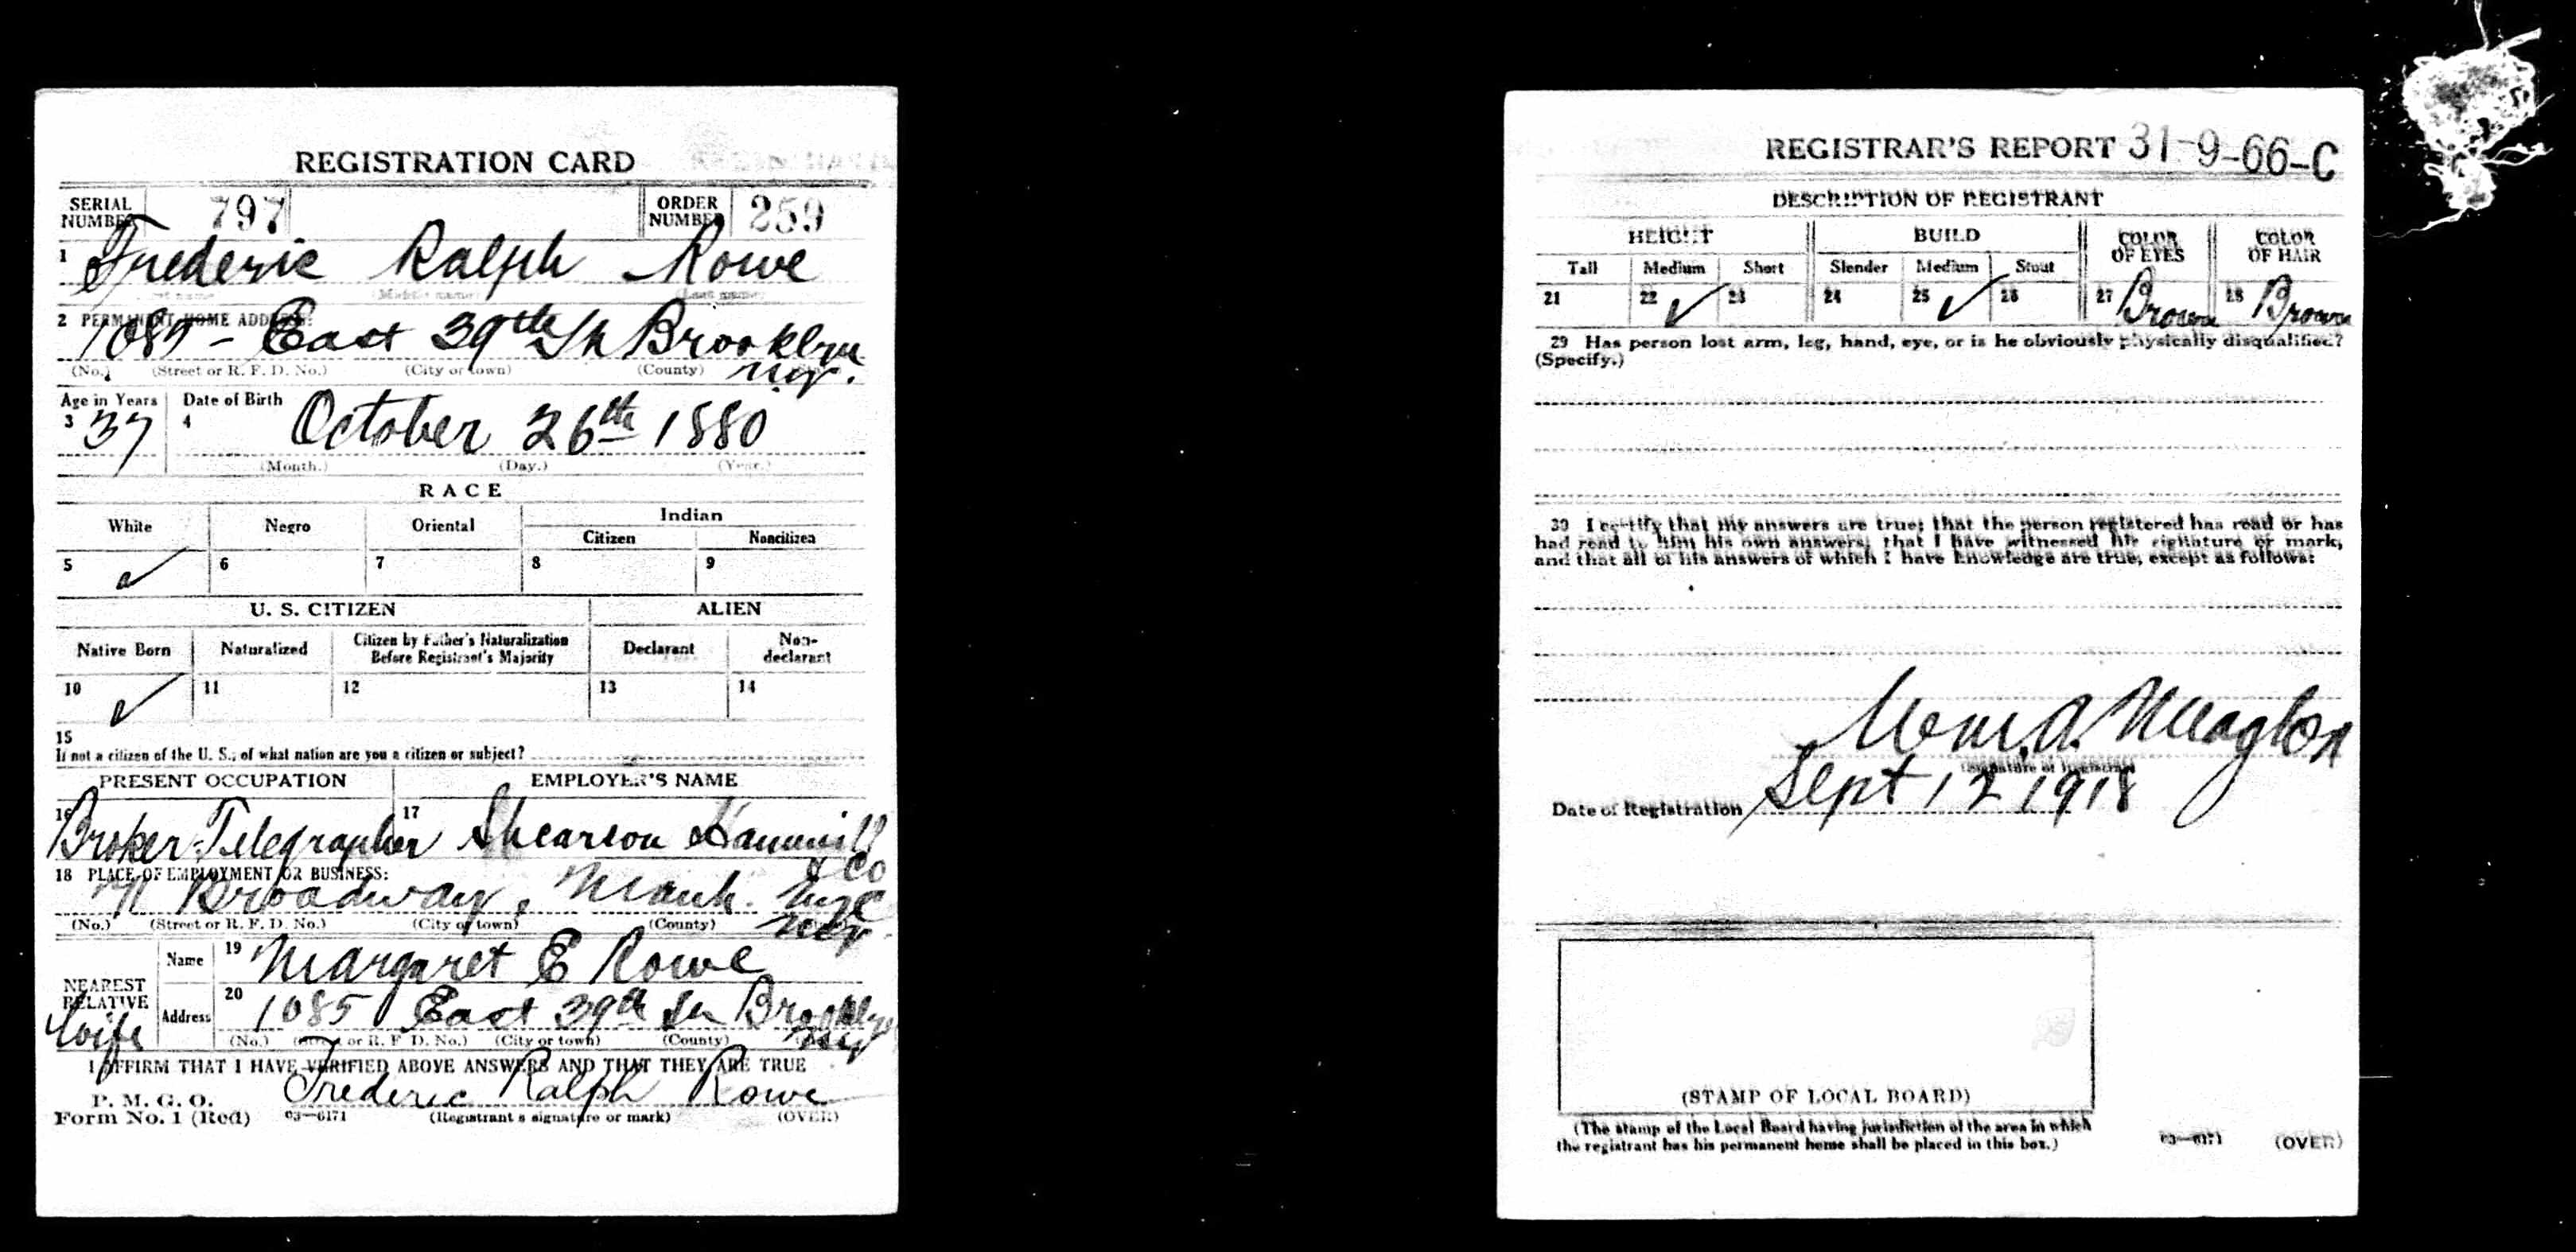 REGISTRATION CARD
SERIAL NUMBER 797 ORDER NUMBER 259
1 Frederic Ralph Rowe
(Middle name) (Last name)
2 PERMANENT HOME ADDRESS:
1085 - East 39th St Brooklyn
(No.) (Street or R. F. D. No.) (City or town) (County)
N.Y.
Age in Years Date of Birth
3 37 4 October 26th 1880
(Month.) (Day.) (Year.)
RACE
White Negro Oriental Indian
Citizen Noncitizen
5 ✓ 6 7 8 9
U. S. CITIZEN ALIEN
Native Born Naturalized Citizen by Father's Naturalization Before Registrant's Majority Declarant Non-declarant
10 ✓ 11 12 13 14
15
If not a citizen of the U. S., of what nation are you a citizen or subject?
PRESENT OCCUPATION EMPLOYER'S NAME
16 Broker-Telegrapher 17 Shearson Hammill
& Co
18 PLACE OF EMPLOYMENT OR BUSINESS:
71 Broadway, Manh. NYC
(No.) (Street or R. F. D. No.) (City or town) (County)
NY
NEAREST RELATIVE
Name 19 Margaret E Rowe
Wife
Address 20 1085 East 39th St Brooklyn
(No.) (Street or R. F. D. No.) (City or town) (County)
NY
I AFFIRM THAT I HAVE VERIFIED ABOVE ANSWERS AND THAT THEY ARE TRUE
P. M. G. O.
Form No. 1 (Red) 03—6171 Frederic Ralph Rowe
(Registrant's signature or mark) (OVER)
REGISTRAR'S REPORT 31-9-66-C
DESCRIPTION OF REGISTRANT
HEIGHT BUILD COLOR OF EYES COLOR OF HAIR
Tall Medium Short Slender Medium Stout
21 22 ✓ 23 24 25 ✓ 26 27 Brown 28 Brown
29 Has person lost arm, leg, hand, eye, or is he obviously physically disqualified?
(Specify.)
30 I certify that my answers are true; that the person registered has read or has
had read to him his own answers; that I have witnessed his signature or mark,
and that all of his answers of which I have knowledge are true, except as follows:
(Signature of Registrar)
Date of Registration Sept 12 1918
(STAMP OF LOCAL BOARD)
(The stamp of the Local Board having jurisdiction of the area in which
the registrant has his permanent home shall be placed in this box.)
03—6171 (OVER)